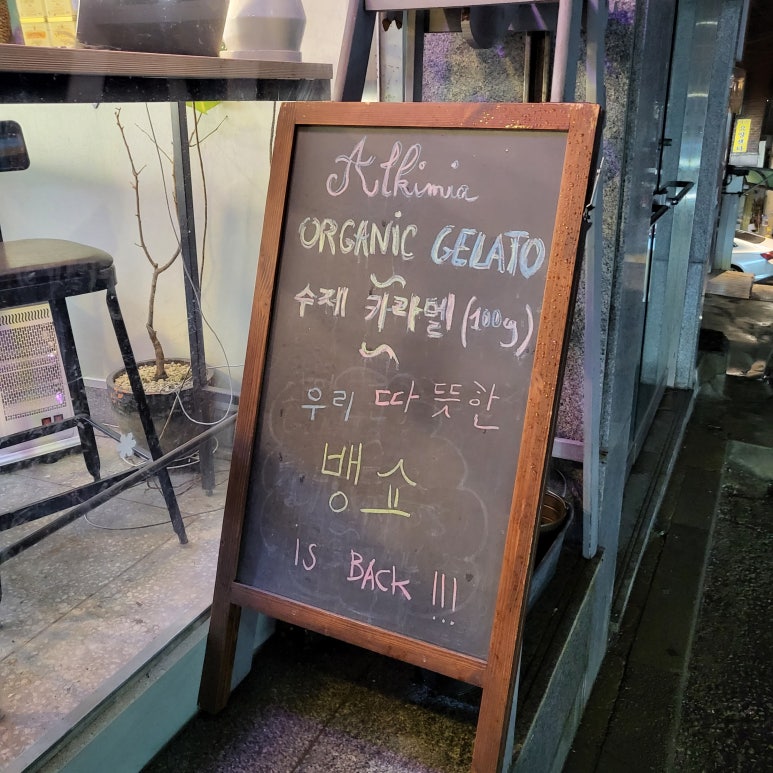 Alkimia
ORGANIC GELATO
수제 카라멜 (100g)
우리 따뜻한
뱅쇼
IS BACK !!!